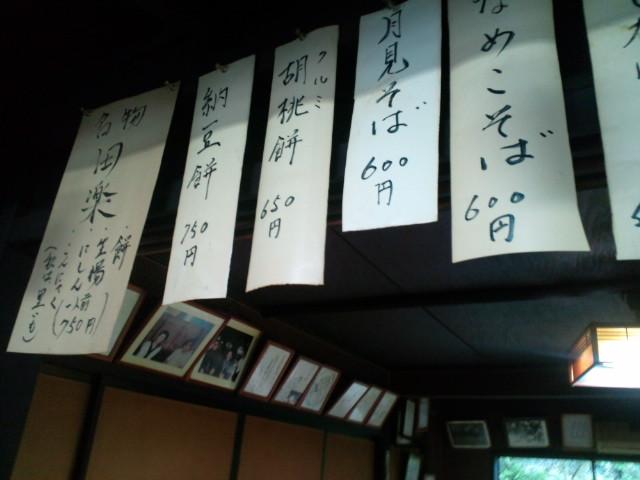 なめこそば 600円
月見そば 600円
クルミ
胡桃餅 650円
納豆餅 750円
名物
田楽
・餅
・生揚
・にしん
・こんにゃく
一人前
(750円)
(秋は里いも)